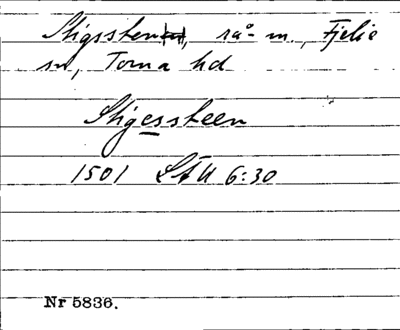 Stigssten, rå- m., Fjelie
sn, Torna hd
Stigessteen
1501 LÄU 6:30
Nr 5836.